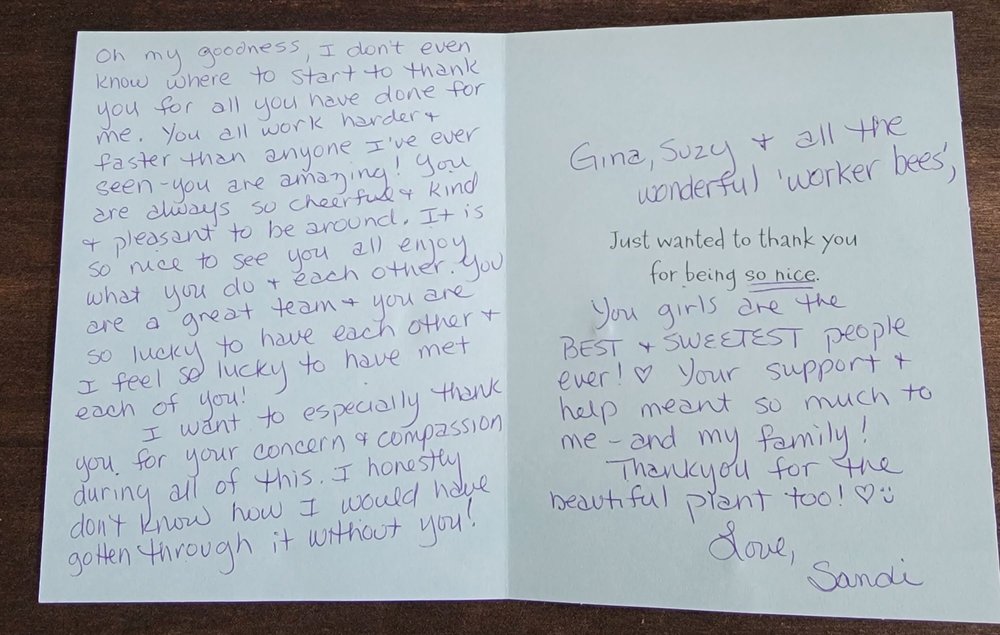 Oh my goodness, I don't even
know where to start to thank
you for all you have done for
me. You all work harder +
faster than anyone I've ever
seen - you are amazing! You
are always so cheerful + kind
+ pleasant to be around. It is
so nice to see you all enjoy
what you do + each other. You
are a great team + you are
so lucky to have each other +
I feel so lucky to have met
each of you!
I want to especially thank
you for your concern + compassion
during all of this. I honestly
don't know how I would have
gotten through it without you!
Gina, Suzy + all the
wonderful 'worker bees',
Just wanted to thank you
for being so nice.
You girls are the
BEST + SWEETEST people
ever! ♡ Your support +
help meant so much to
me - and my family!
Thankyou for the
beautiful plant too! ♡☺
Love,
Sandi